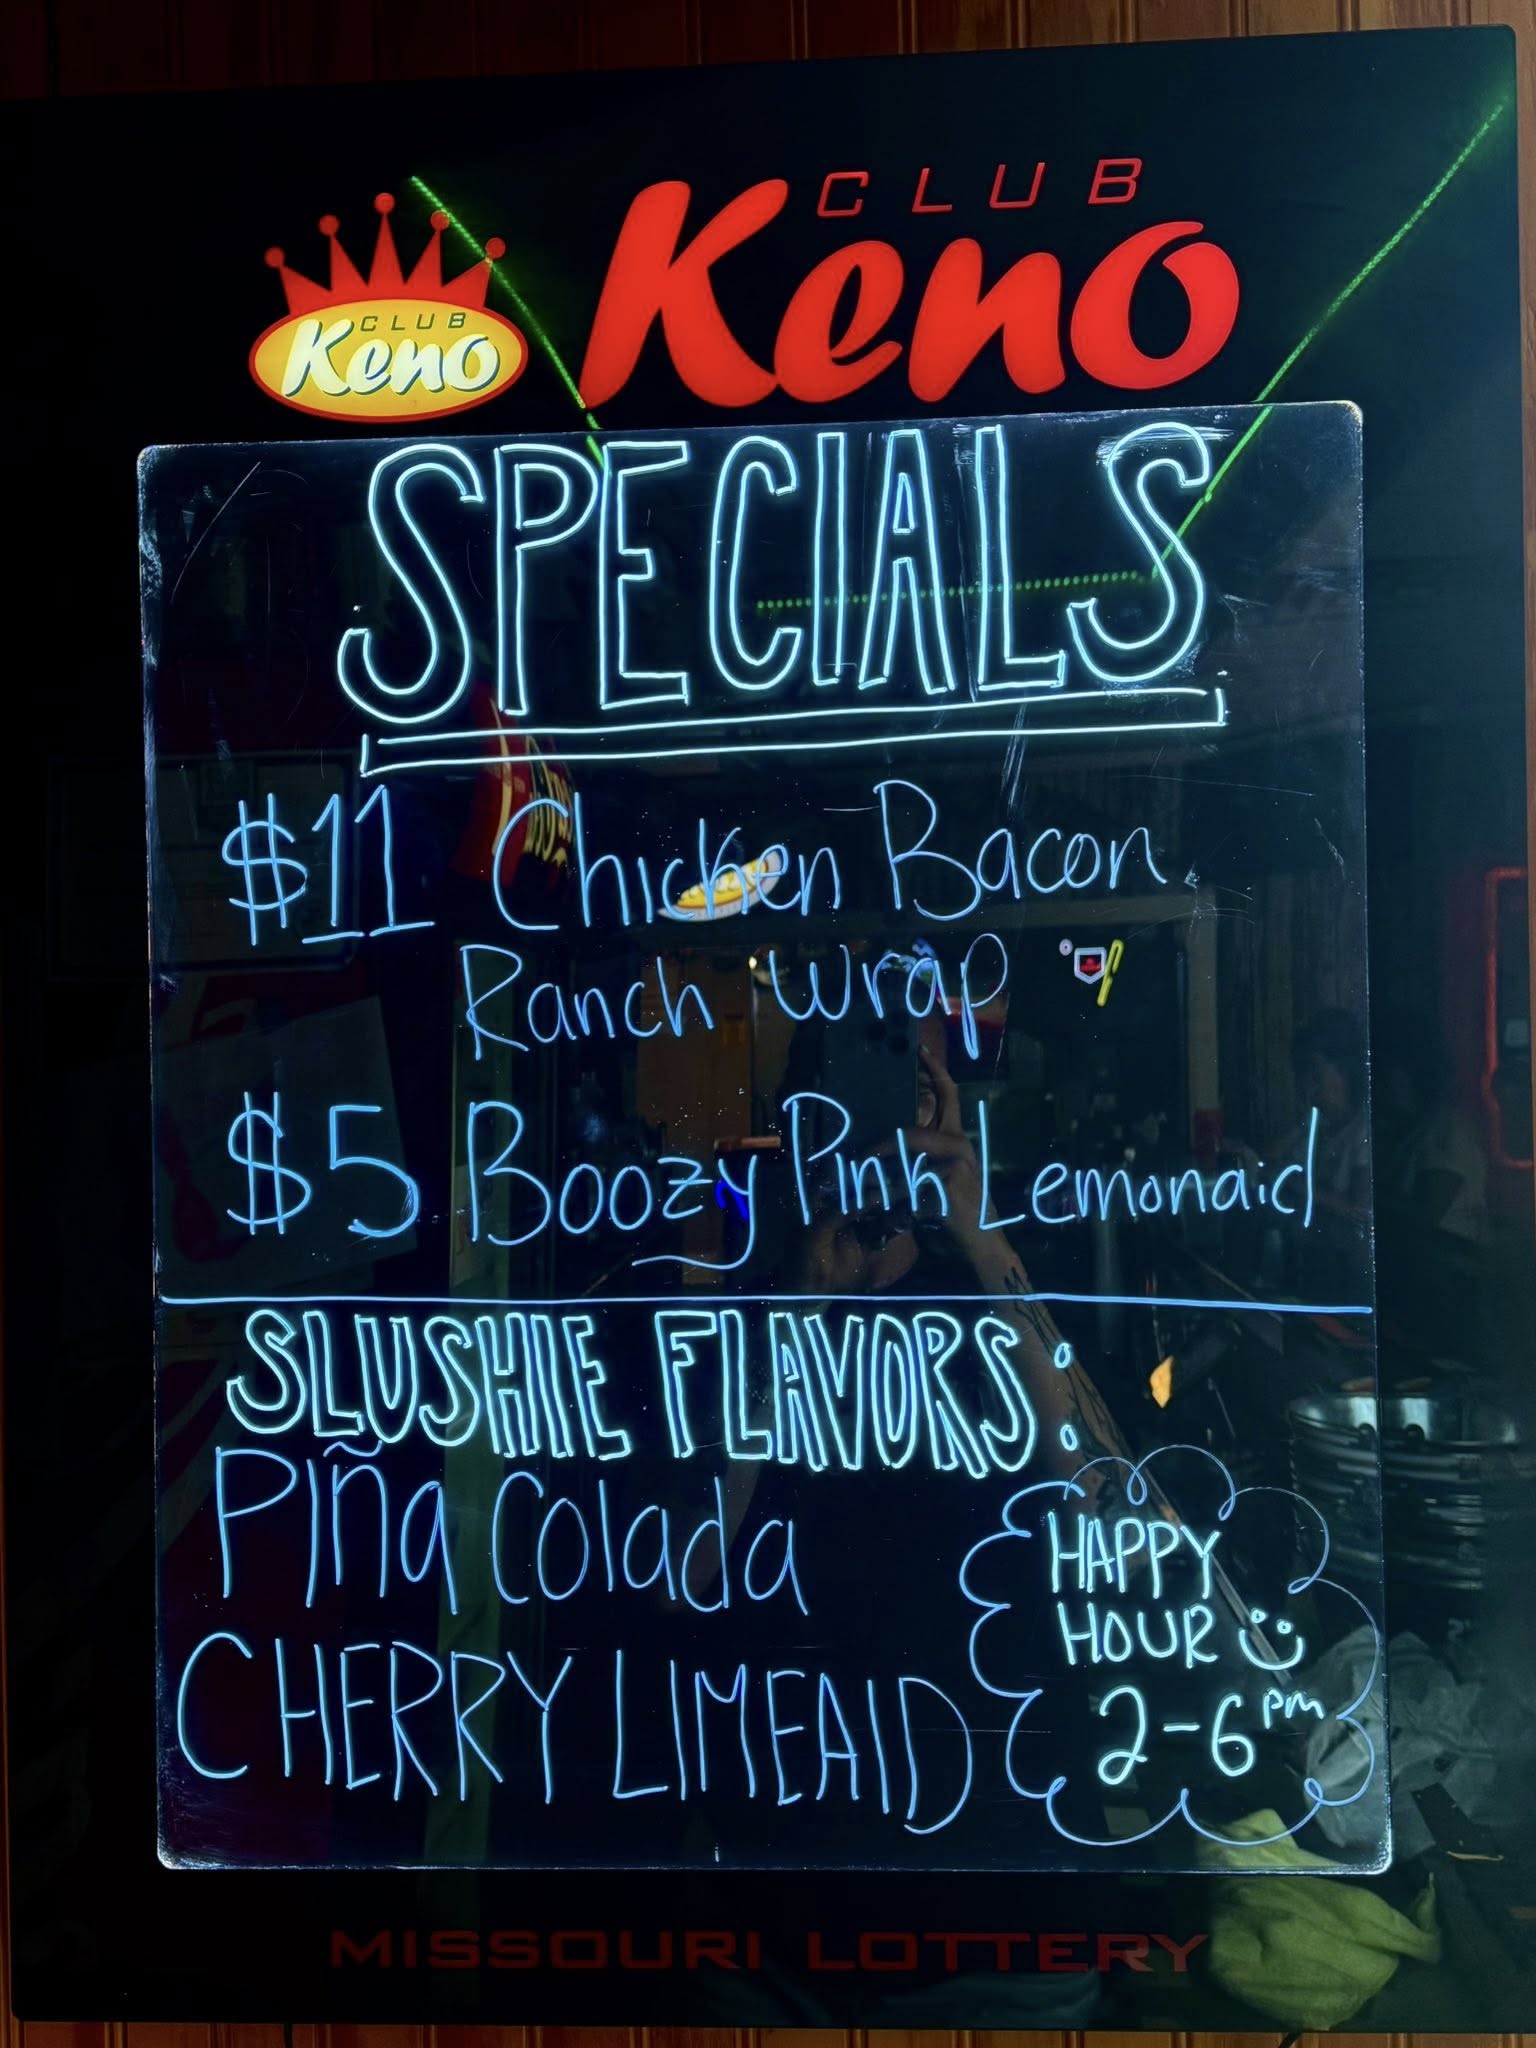 CLUB
Keno
CLUB
Keno
SPECIALS
$11 Chicken Bacon
Ranch Wrap
$5 Boozy Pink Lemonaid
SLUSHIE FLAVORS:
Piña Colada
CHERRY LIMEAID
HAPPY
HOUR
2-6 pm
MISSOURI LOTTERY